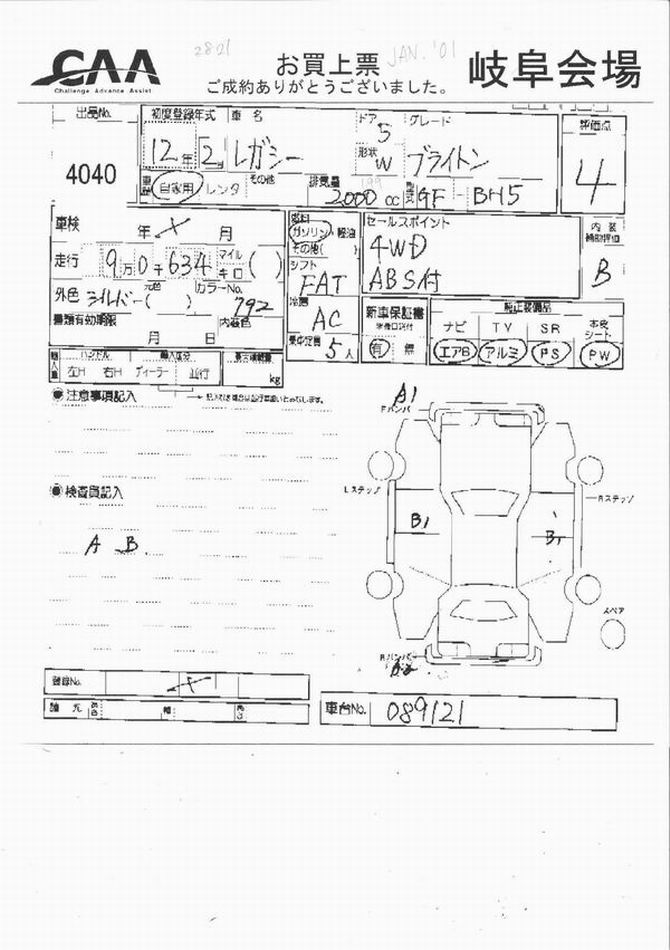 CAA
Challenge Advance Assist
2821
お買上票
JAN. '01
ご成約ありがとうございました。
岐阜会場
出品No.
4040
初度登録年式
12年 2月
車名
レガシー
ドア
5
形状
W
グレード
ブライトン
評価点
4
車歴
自家用 レンタ その他
排気量
2000 cc
型式
GF - BH5
車検
年 X 月
走行
9万0千634
マイル
キロ
( )
外色
シルバー( )
元色
カラーNo.
792
書類有効期限
月 日
内装色
燃料
ガソリン・軽油
その他( )
シフト
FAT
冷房
AC
乗車定員
5人
セールスポイント
4WD
ABS付
内装
補助評価
B
新車保証書
有 無
純正装備品
ナビ TV SR 本皮シート
エアB アルミ PS PW
輸入車
ハンドル
左H 右H
輸入区分
ディーラー 並行
最大積載量
kg
●注意事項記入
●検査員記入
A B
A1
Fバンパ
Lステップ
Rステップ
B1
B1
スペア
Rバンパ
A2
登録No.
X
諸元
長さ
幅
高さ
車台No.
089121